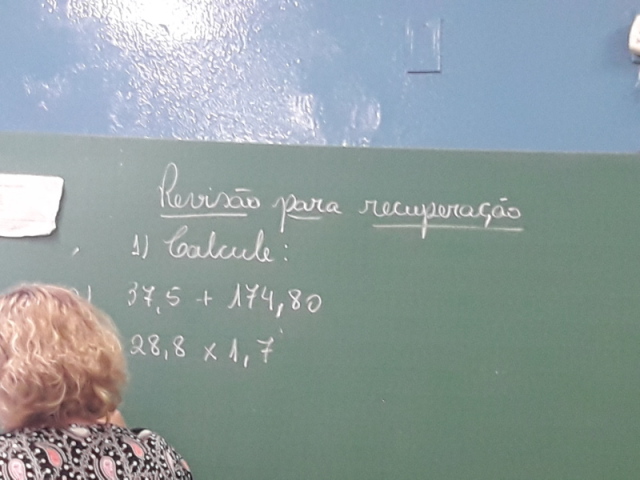 Revisão para recuperação
1) Calcule:
37,5 + 174,80
28,8 x 1,7